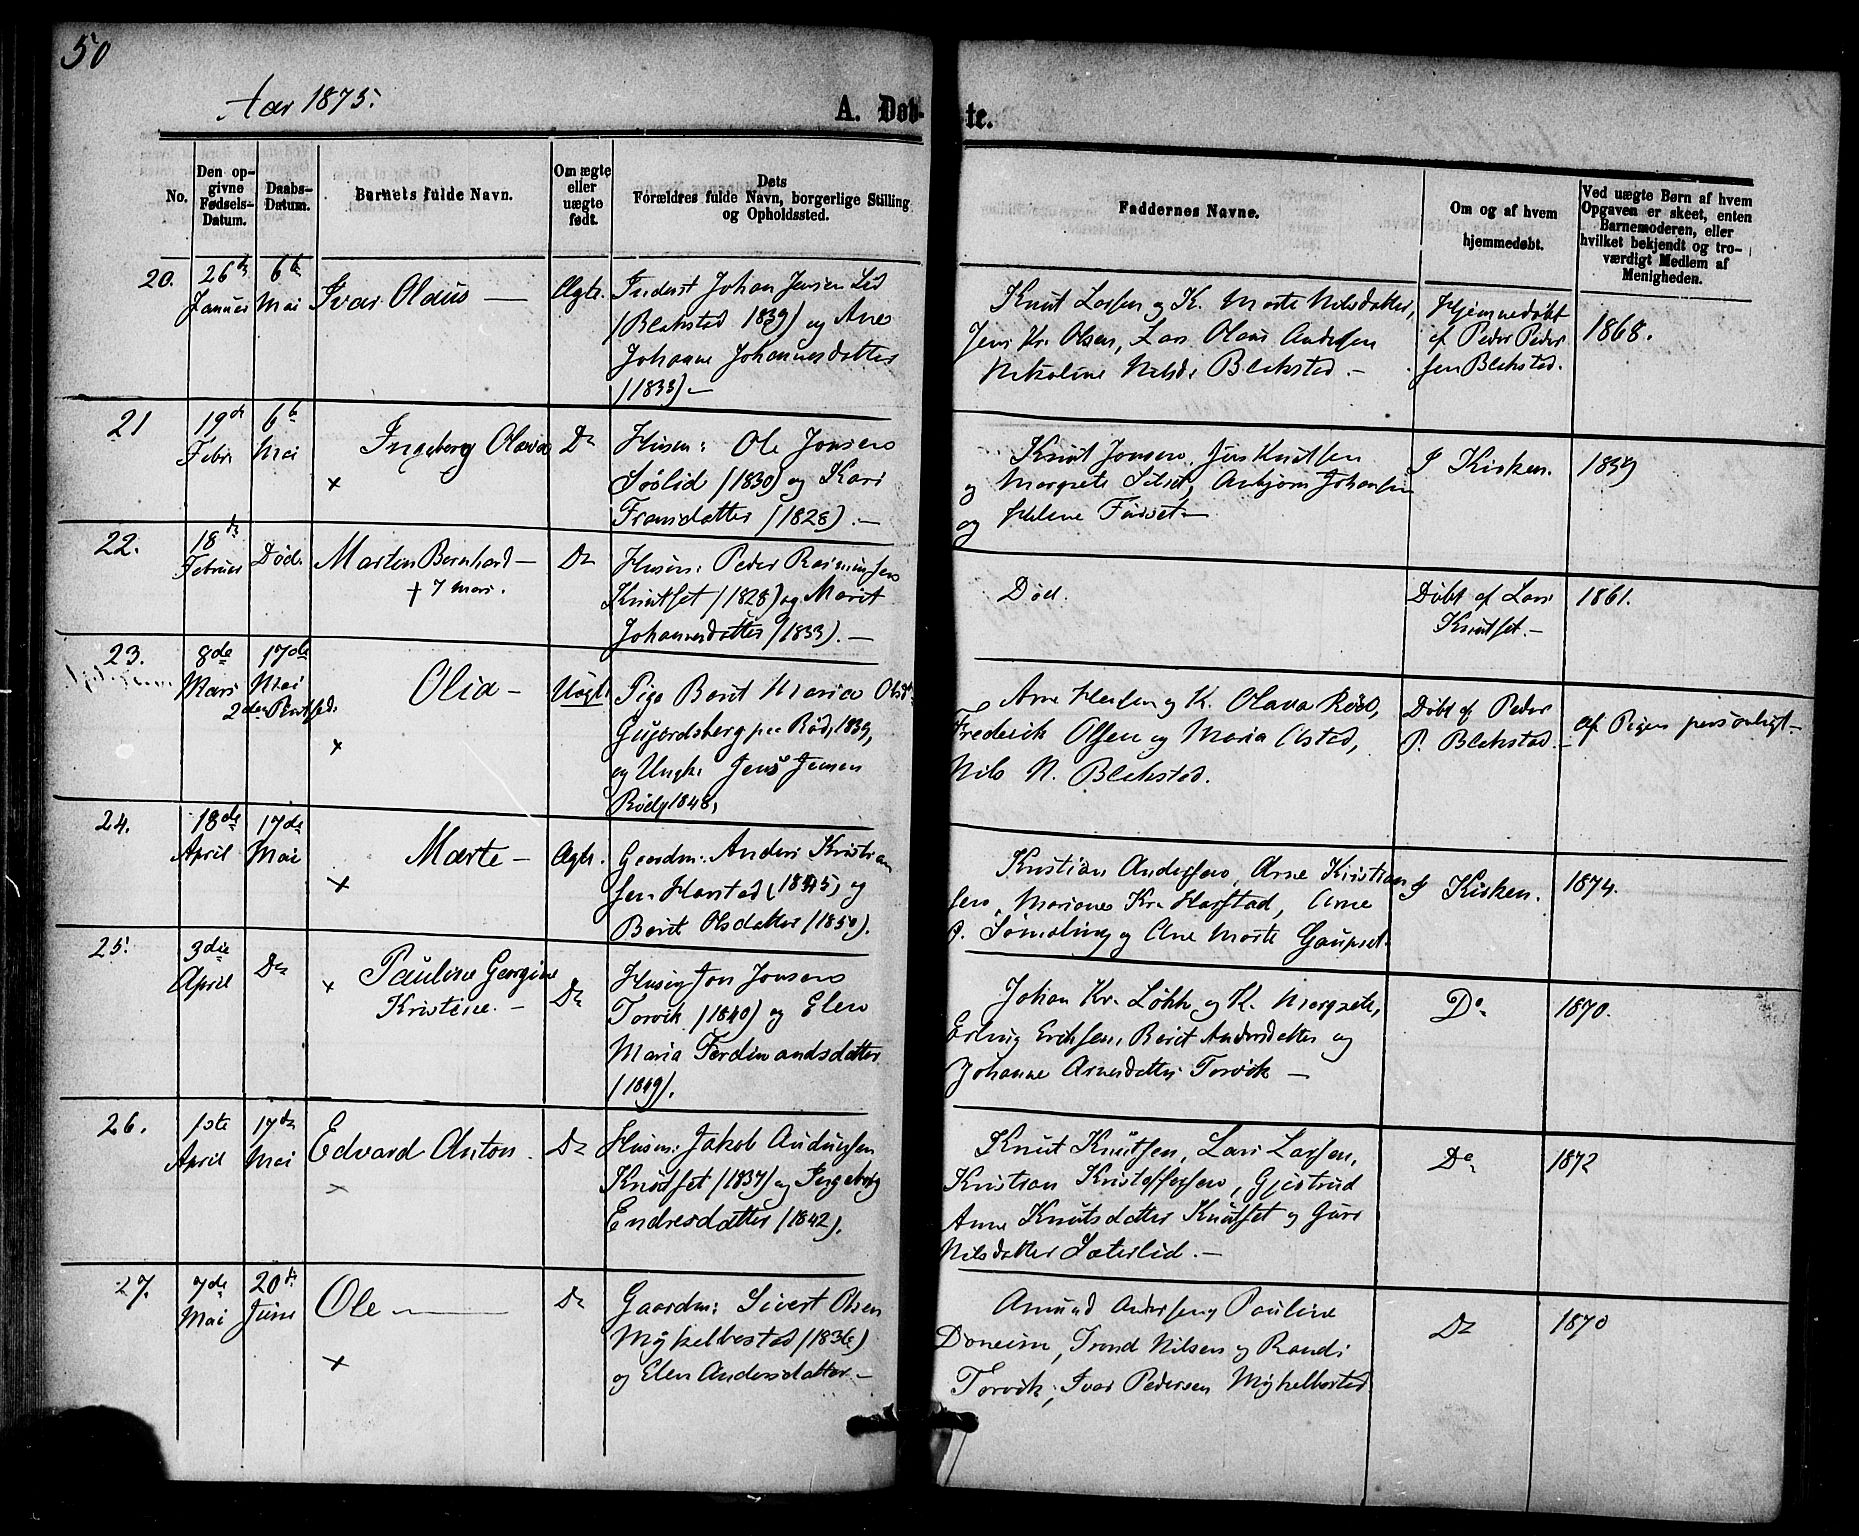 50
Aar 1875.
A. Døb-
te.
No.
Den op-
givne
Fødsels-
Datum.
Daabs-
Datum.
Barnets fulde Navn.
Om ægte
eller
uægte
født.
Dets
Forældres fulde Navn, borgerlige Stilling
og Opholdssted.
Faddernes Navne.
Om og af hvem
hjemmedøbt.
Ved uægte Børn af hvem
Opgaven er skeet, enten
Barnemoderen, eller
hvilket bekjendt og tro-
værdigt Medlem af
Menigheden.
20.
26de
Januar
6te
Mai
Ivar Oldus —
Ægte.
Inderst Johan Jensen Lid
(Blekstad 1839) og Ane
Johanne Johannesdatter
(1833) —
Knut Larsen og K. Marte Nilsdatter,
Jens Kr. Olsen, Lars Olaus Andersen
Nikoline Nilsd. Blekstad. —
Hjemmedøbt
af Peder Peder
sen Blekstad.
1868.
21
19de
Febr.
6te
Mai
Ingeborg Olava
×
Do
Husm: Ole Jonsen
Sølid (1830) og Kari
Fransdatter (1828). —
Knut Jonsen, Jens Knutsen
og Margrete, Anbjørn Johansen
og Helene Farset —
I Kirken.
1859
22.
18de
Februar
Død.
Morten Bernhard —
+ 7 Mars.
Do
Husm: Peder Rasmussen
Knutset (1828) og Marit
Johannesdatter (1833). —
Død.
Døbt af Lars
Knutset. —
1861.
23.
8de
Mars
17de
Mai
2den Pintsed.
Olia —
×
Uægte
Pige Berit Maria Olsd.
Gujordsberg paa Rød, 1839,
og Ungk. Jens Jensen
Rød, 1848,
Arne Heilsen og K. Olava Rød,
Frederik Olsen og Maria Olstad,
Nils N. Blekstad.
Døbt af Peder
P. Blekstad. —
af Pigen personligt —
24.
18de
April
17de
Mai
Marte —
×
Ægte.
Gaardm: Anders Kristian
sen Harstad (1845) og
Berit Olsdatter (1850).
Kristian Andersen, Arne Kristian
sen, Mariane Kr. Harstad, Arne
P. Sømoling og Ane Marte Gaupset.
I Kirken.
1874.
25.
3die
April
Do
×
Pauline Georgine
Kristine. —
Do
Husm: Jon Jonsen
Torvik (1840) og Elen
Maria Ferdinandsdatter
(1849).
Johan Kr. Løkk og K. Margrete,
Erling Eriksen, Berit Andersdatter og
Johanne Arnesdatter Torvik —
Do
1870.
26.
1ste
April
17de
Mai
Edvard Anton.
×
Do
Husm: Jakob Audunsen
Knutset (1837) og Ingeborg
Endresdatter (1842).
Knut Knutsen, Lars Larsen,
Kristian Kristoffersen, Gjertrud
Anne Knutsdatter Knutset og Guri
Nilsdatter Sæterlid. —
Do
1872
27.
7de
Mai
20de
Juni
Ole —
×
Do
Gaardm: Sivert Olsen
Myklebostad (1836)
og Elen Andersdatter —
Amund Andersen og Pauline
Doneim, Trond Nilsen og Randi
Torvik, Ivar Pedersen Myklebostad
Do
1870